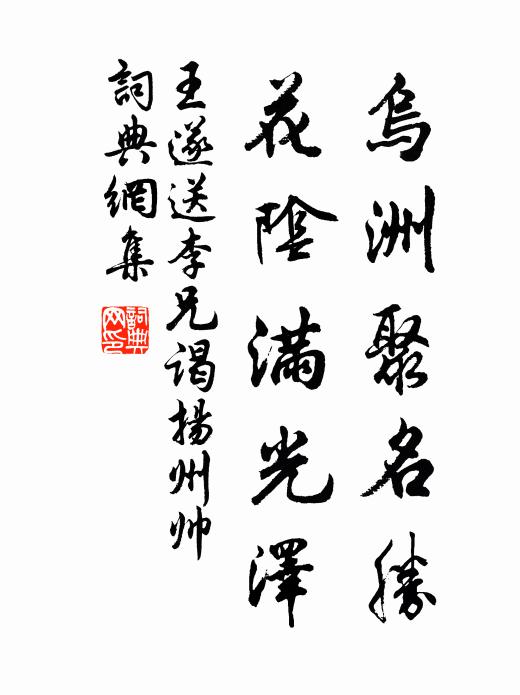 烏洲聚名勝
花陰滿光澤
王遂送李兄謁揚州帥
詞典網集
詞典网印